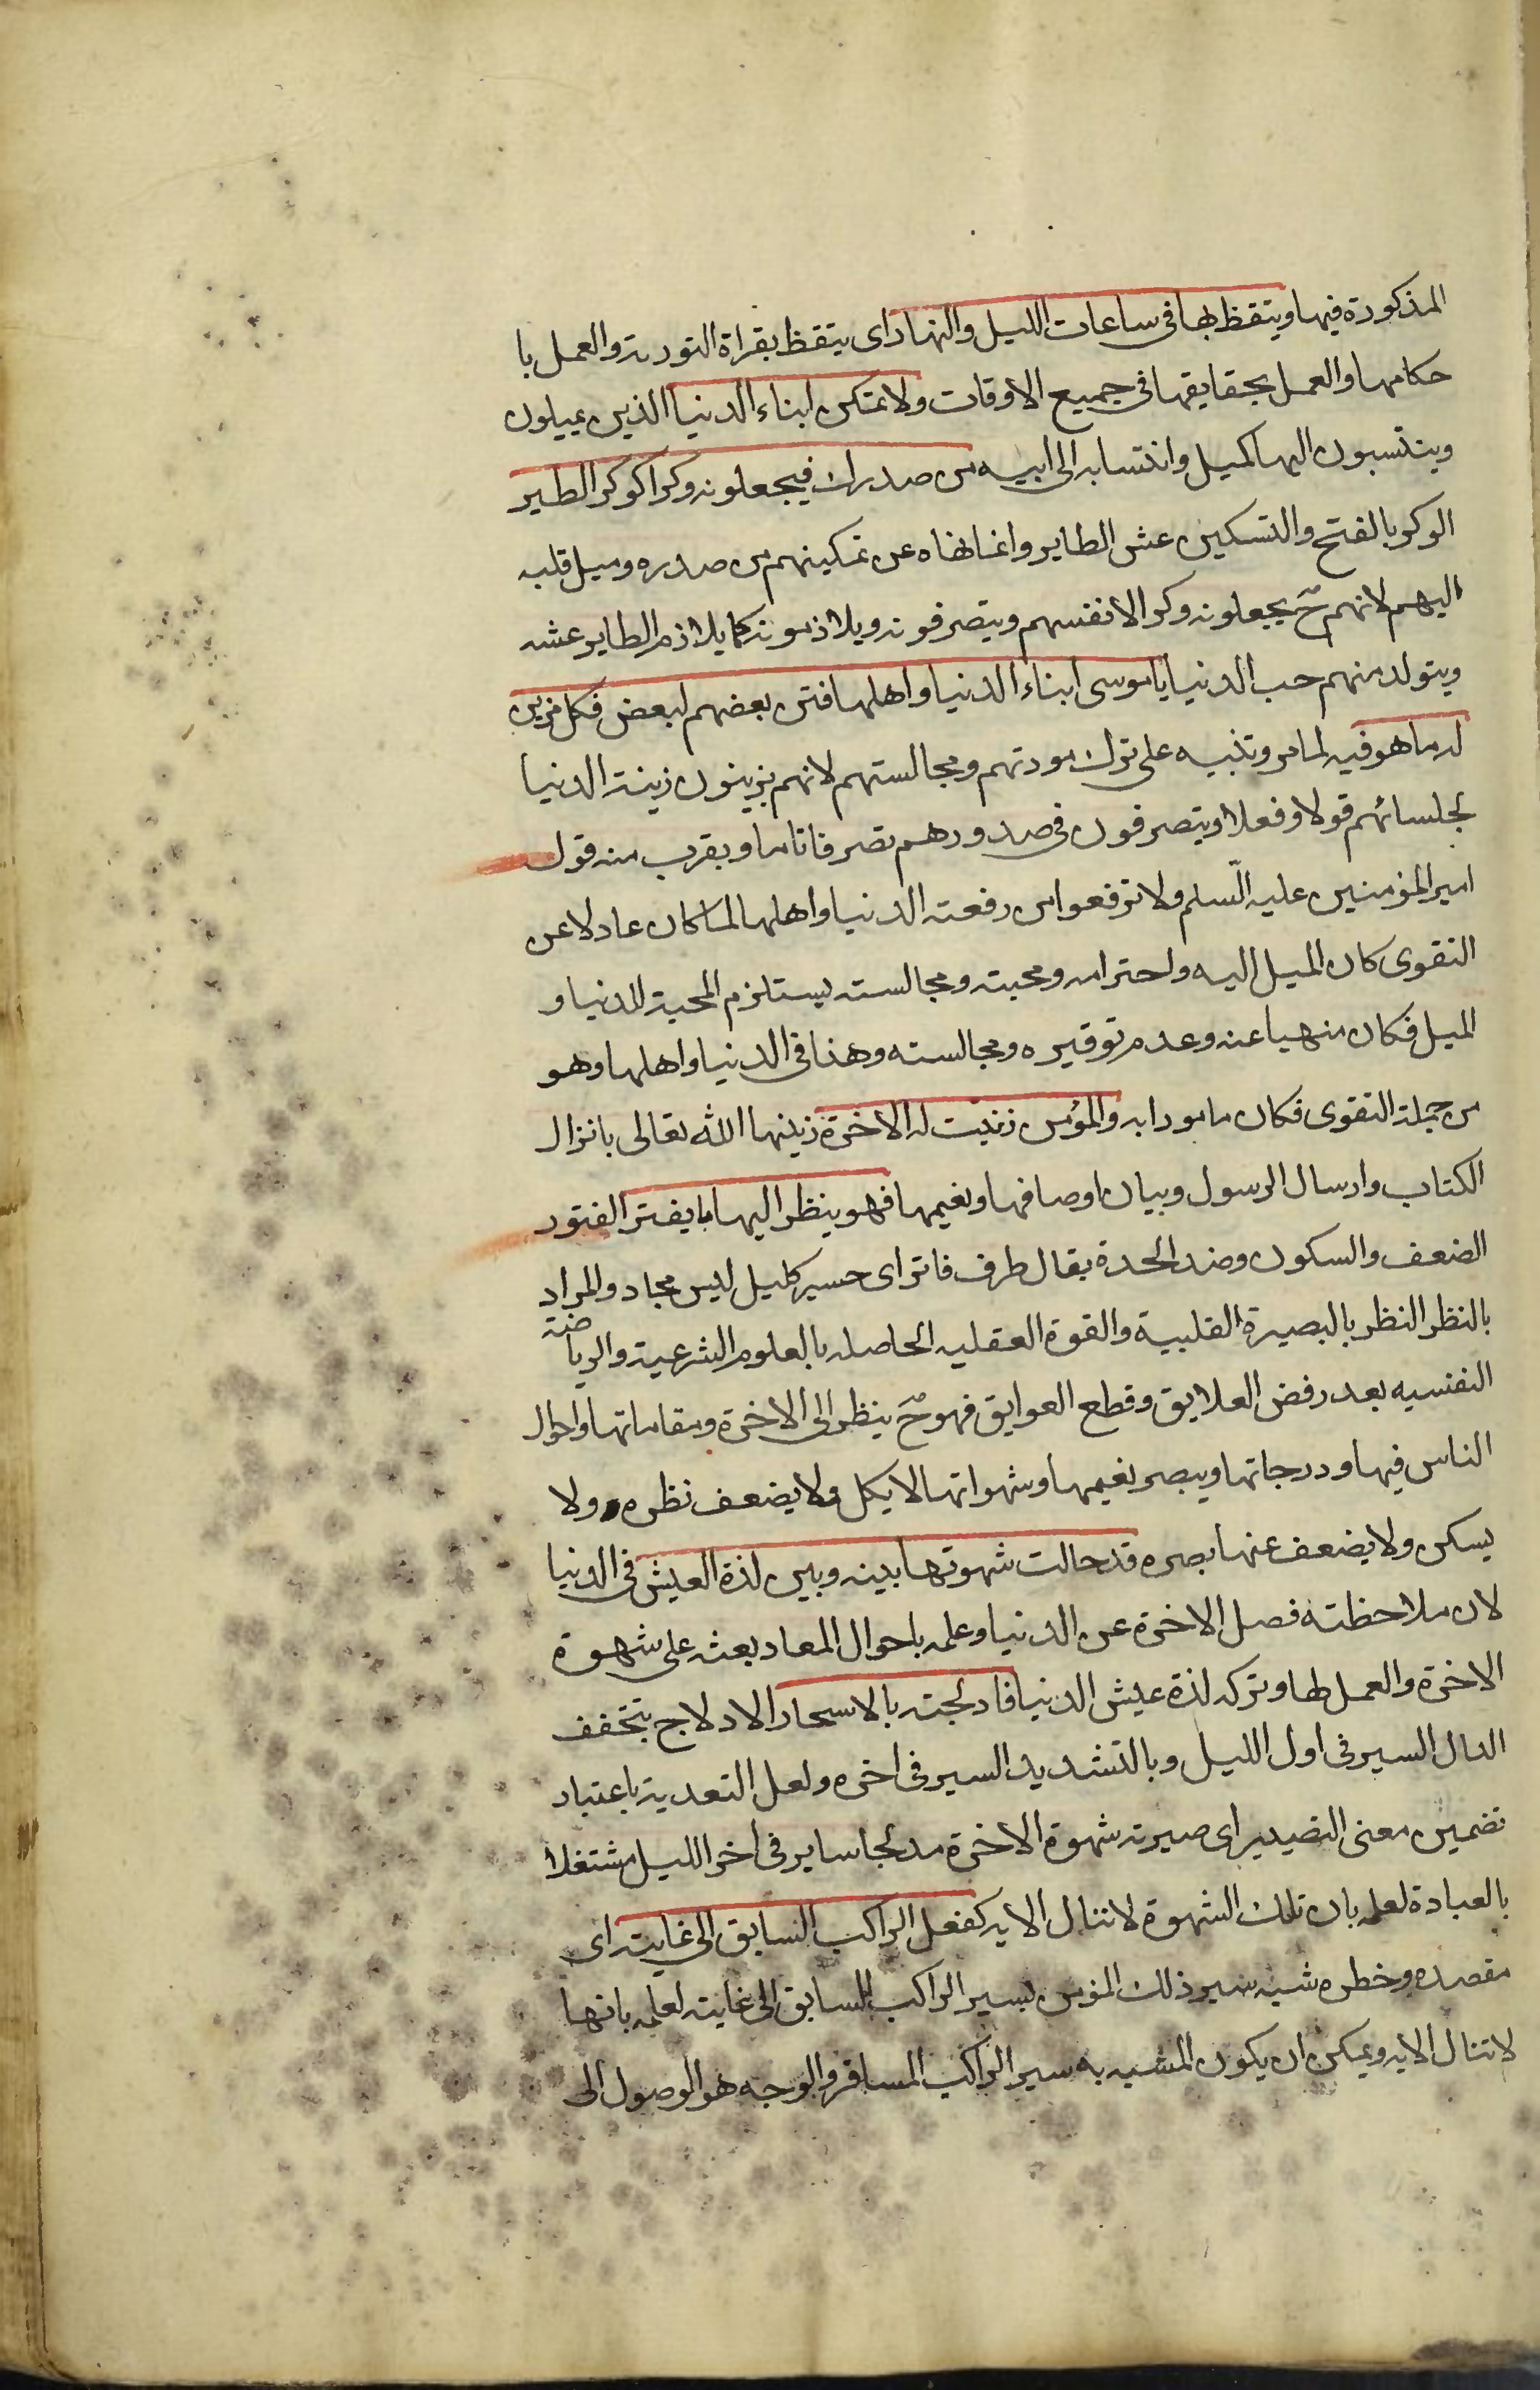 المذكورة فيها ويتقظ بها فى ساعات الليل والنهار اى يتقظ بقراة التورية والعمل با
حكامها والعمل بحقايقها فى جميع الاوقات ولا تمكن ابناء الدنيا الذين يميلون
وينتسبون اليها كميل وانتسابه الى ابيه من صدرك فيجعلونه وكرا كوكر الطير
الوكر بالفتح والتسكين عش الطاير وانما نهاه عن تمكينهم من صدره وميل قلبه
اليهم لانهم ح يجعلونه وكرا لانفسهم ويتصرفونه ويلازمونه كما يلازم الطاير عشه
ويتولد منهم حب الدنيا ياموسى ابناء الدنيا واهلها فتن بعضهم لبعض فكل مزين
له ما هو فيه لما مر وتنبيه على ترك مودتهم ومجالستهم لانهم يزينون زينة الدنيا
لجلسائهم قولا وفعلا ويتصرفون فى صدورهم تصرفا تاما ويقرب منه قول
امير المؤمنين عليه السلم ولا ترفعوا من رفعته الدنيا واهلها لما كان عادلا عن
التقوى كان الميل اليه واحترامه ومحبته ومجالسته يستلزم المحبة للدنيا و
الميل فكان منهيا عنه وعدم توقيره ومجالسته وهذا فى الدنيا واهلها وهو
من جملة التقوى فكان مامورا به والمؤمن زينت له الاخرة زينها الله تعالى بانزال
الكتاب وارسال الرسول وبيان اوصافها ونعيمها فهو ينظر اليها ما يفتر الفتور
الضعف والسكون وضد الحدة يقال طرف فاتر اى حسير كليل ليس بحاد والمراد
بالنظر النظر بالبصيرة القلبية والقوة العقليه الحاصله بالعلوم الشرعية والرياضة
النفسيه بعد رفض العلايق وقطع العوايق فهو ح ينظر الى الاخرة ومقاماتها واحوال
الناس فيها ودرجاتها ويبصر نعيمها وشهواتها لا يكل ولا يضعف نظره ولا
يسكن ولا يضعف عنها بصره قد حالت شهوتها بينه وبين لذة العيش فى الدنيا
لان ملاحظته فصل الاخرة عن الدنيا وعلمه باحوال المعاد بعثه على شهوة
الاخرة والعمل لها وتركه لذة عيش الدنيا فادلجته بالاسحار الادلاج بتخفف
الدال السير فى اول الليل وبالتشديد السير فى اخره ولعل التعدية باعتبار
تضمين معنى التصيير اى صيرته شهوة الاخرة مدلجا ساير فى اخر الليل مشتغلا
بالعبادة لعلمه بان تلك الشهوة لا تنال الا به كفعل الراكب السابق الى غايته اى
مقصده وخطره شبه سير ذلك المؤمن بسير الراكب للسابق الى غايته لعلمه بانها
لا تنال الا به ويمكن ان يكون المشبه به سير الراكب المسافر والوجه هو الوصول الى